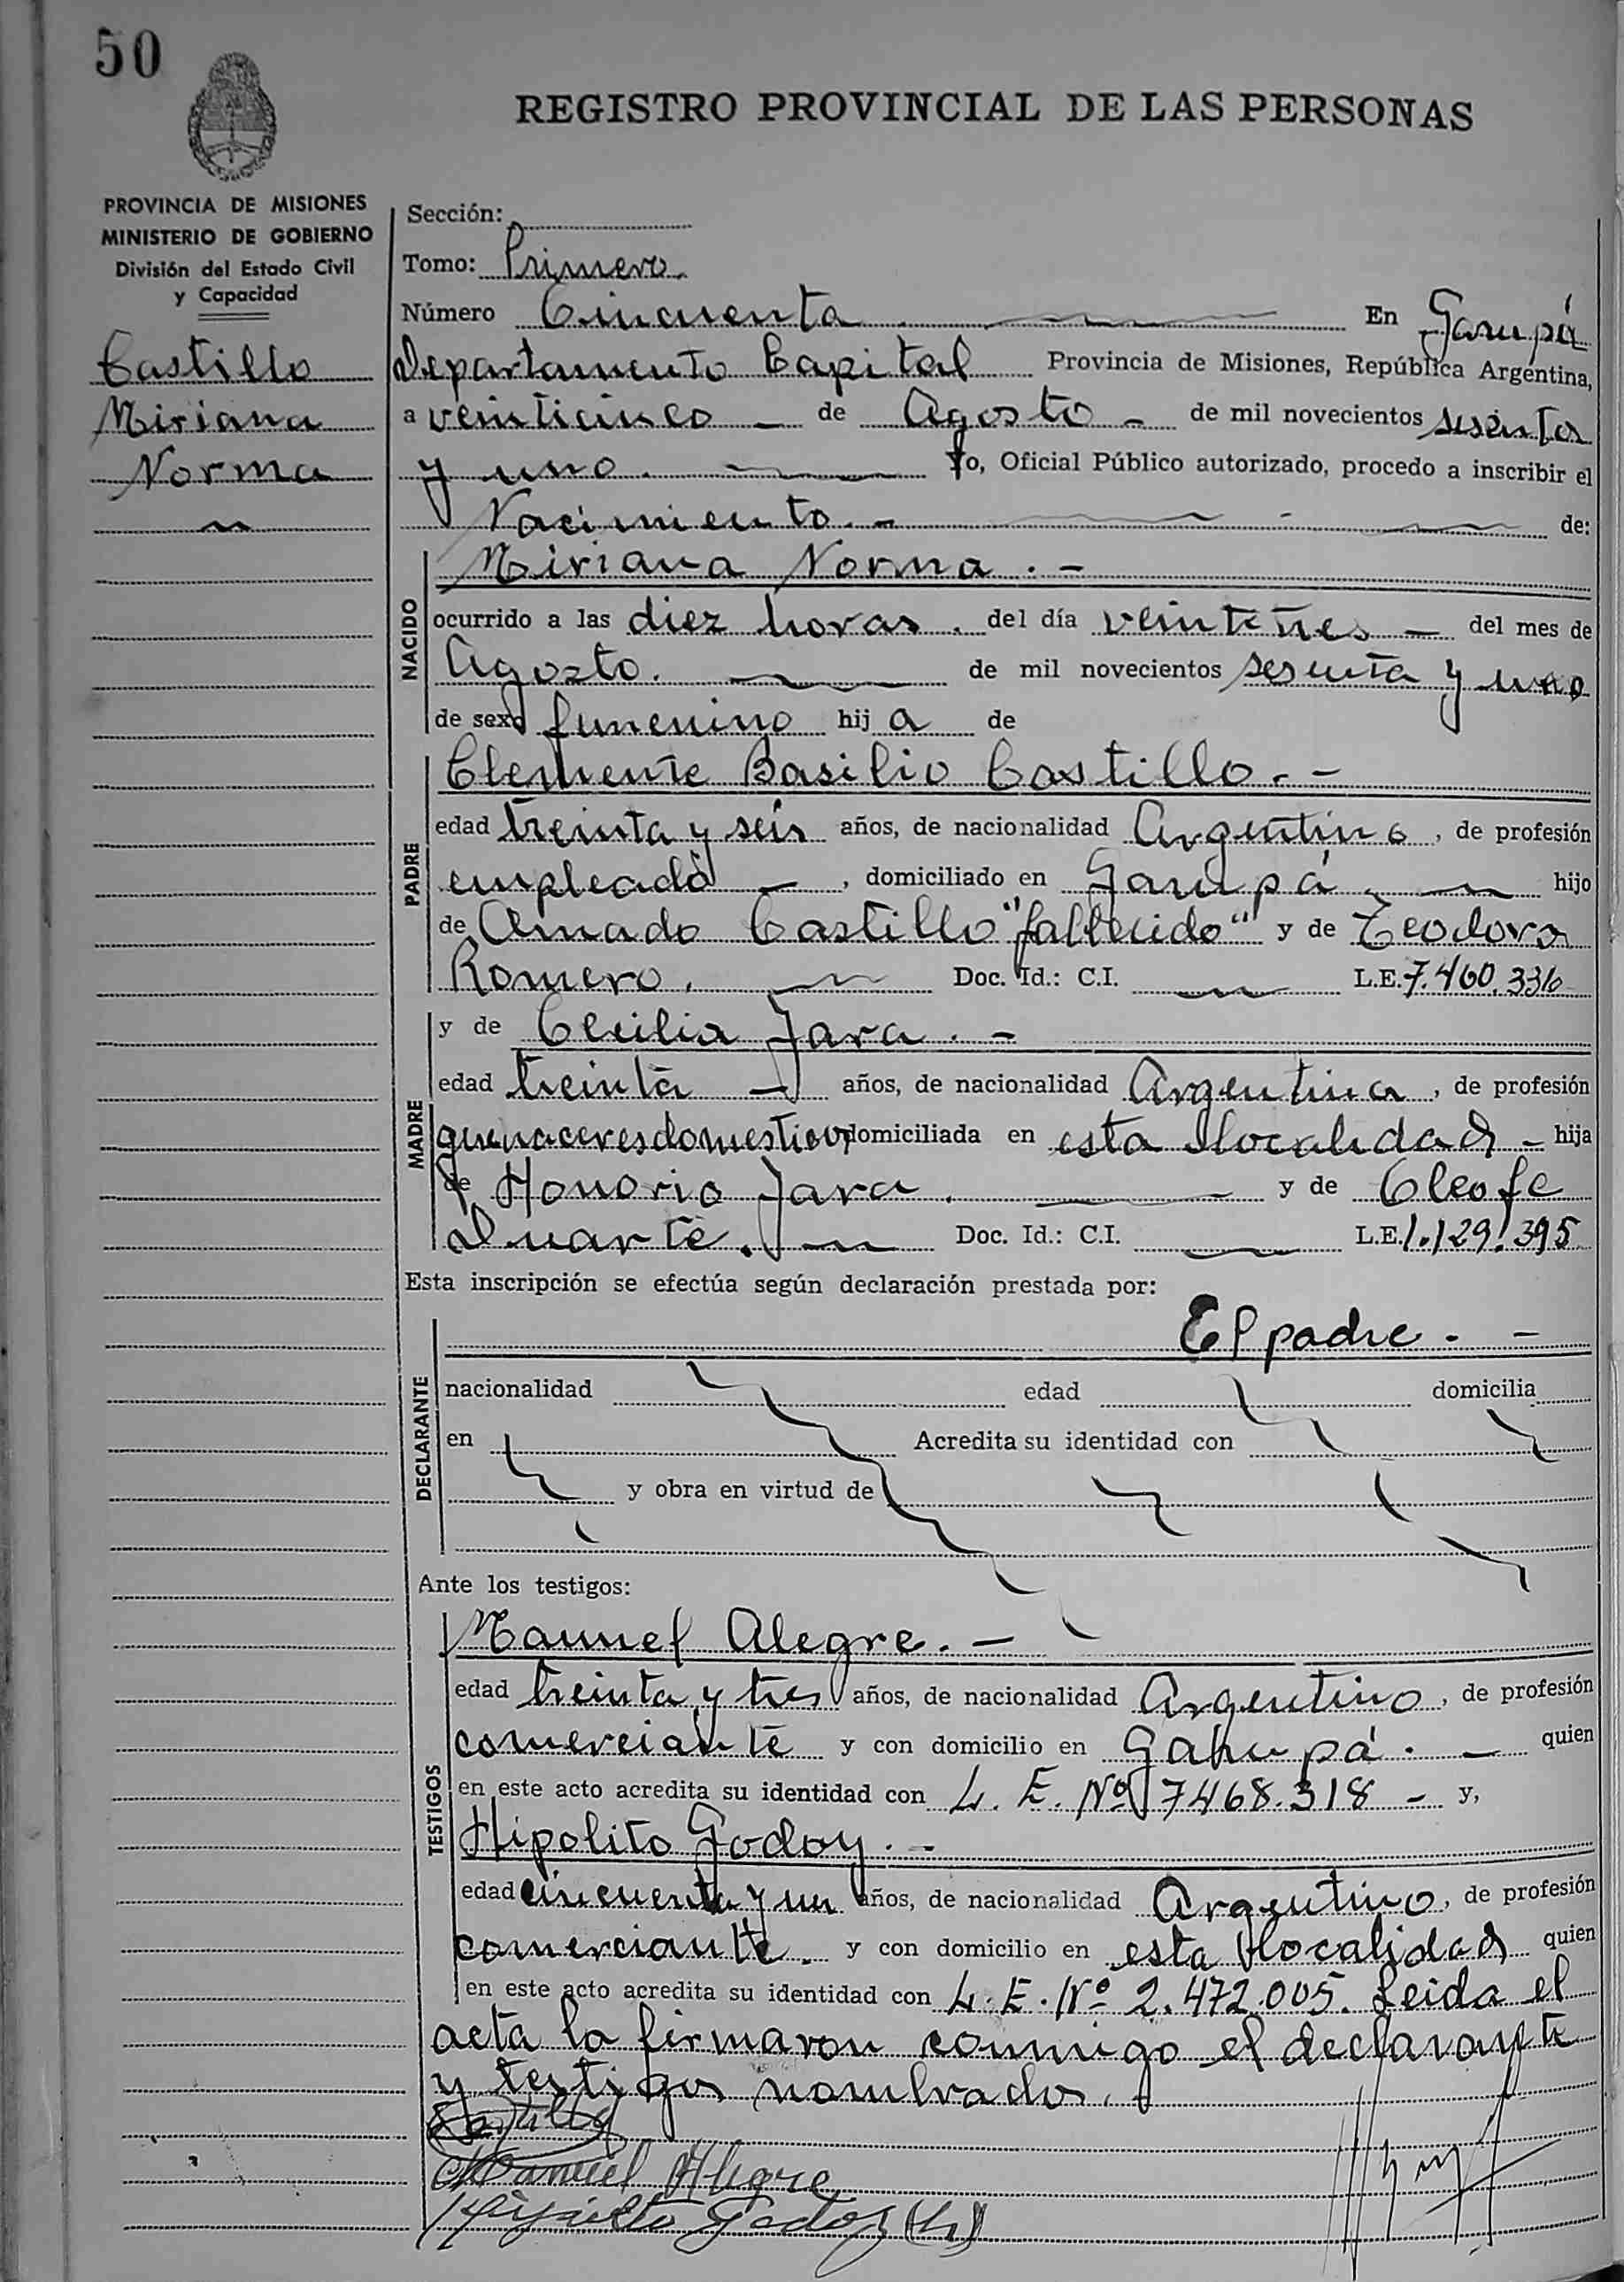 50
REGISTRO PROVINCIAL DE LAS PERSONAS
PROVINCIA DE MISIONES
MINISTERIO DE GOBIERNO
División del Estado Civil
y Capacidad
Castillo
Miriana
Norma
Sección:
Tomo: Primero.
Número Cincuenta En Garupá
Departamento Capital Provincia de Misiones, República Argentina,
a veinticinco - de Agosto - de mil novecientos sesenta
y uno. Yo, Oficial Público autorizado, procedo a inscribir el
Nacimiento. - de:
NACIDO
Miriana Norma. -
ocurrido a las diez horas. del día veintitres - del mes de
Agosto. de mil novecientos sesenta y uno
de sexo femenino hij a de
PADRE
Clemente Basilio Castillo. -
edad treinta y seis años, de nacionalidad Argentino, de profesión
empleado -, domiciliado en Garupá. hijo
de Amado Castillo "fallecido" y de Teodora
Romero. Doc. Id.: C.I. L.E. 7.460.336
MADRE
y de Cecilia Jara. -
edad treinta - años, de nacionalidad Argentina, de profesión
quehaceres domesticos, domiciliada en esta localidad - hija
de Honorio Jara. y de Cleofe
Duarte. Doc. Id.: C.I. L.E. 1.129.395
Esta inscripción se efectúa según declaración prestada por:
DECLARANTE
El padre. -
nacionalidad edad domicilia
en Acredita su identidad con
y obra en virtud de
Ante los testigos:
TESTIGOS
Manuel Alegre. -
edad treinta y tres años, de nacionalidad Argentino, de profesión
comerciante y con domicilio en Garupá. - quien
en este acto acredita su identidad con L. E. Nº 7468.318 - y,
Hipolito Godoy. -
edad cincuenta y un años, de nacionalidad Argentino, de profesión
comerciante. y con domicilio en esta localidad quien
en este acto acredita su identidad con L. E. Nº 2.472.005. Leida el
acta la firmaron conmigo el declarante
y testigos nombrados.
Castillo
Manuel Alegre
Hipólito Godoy (h)